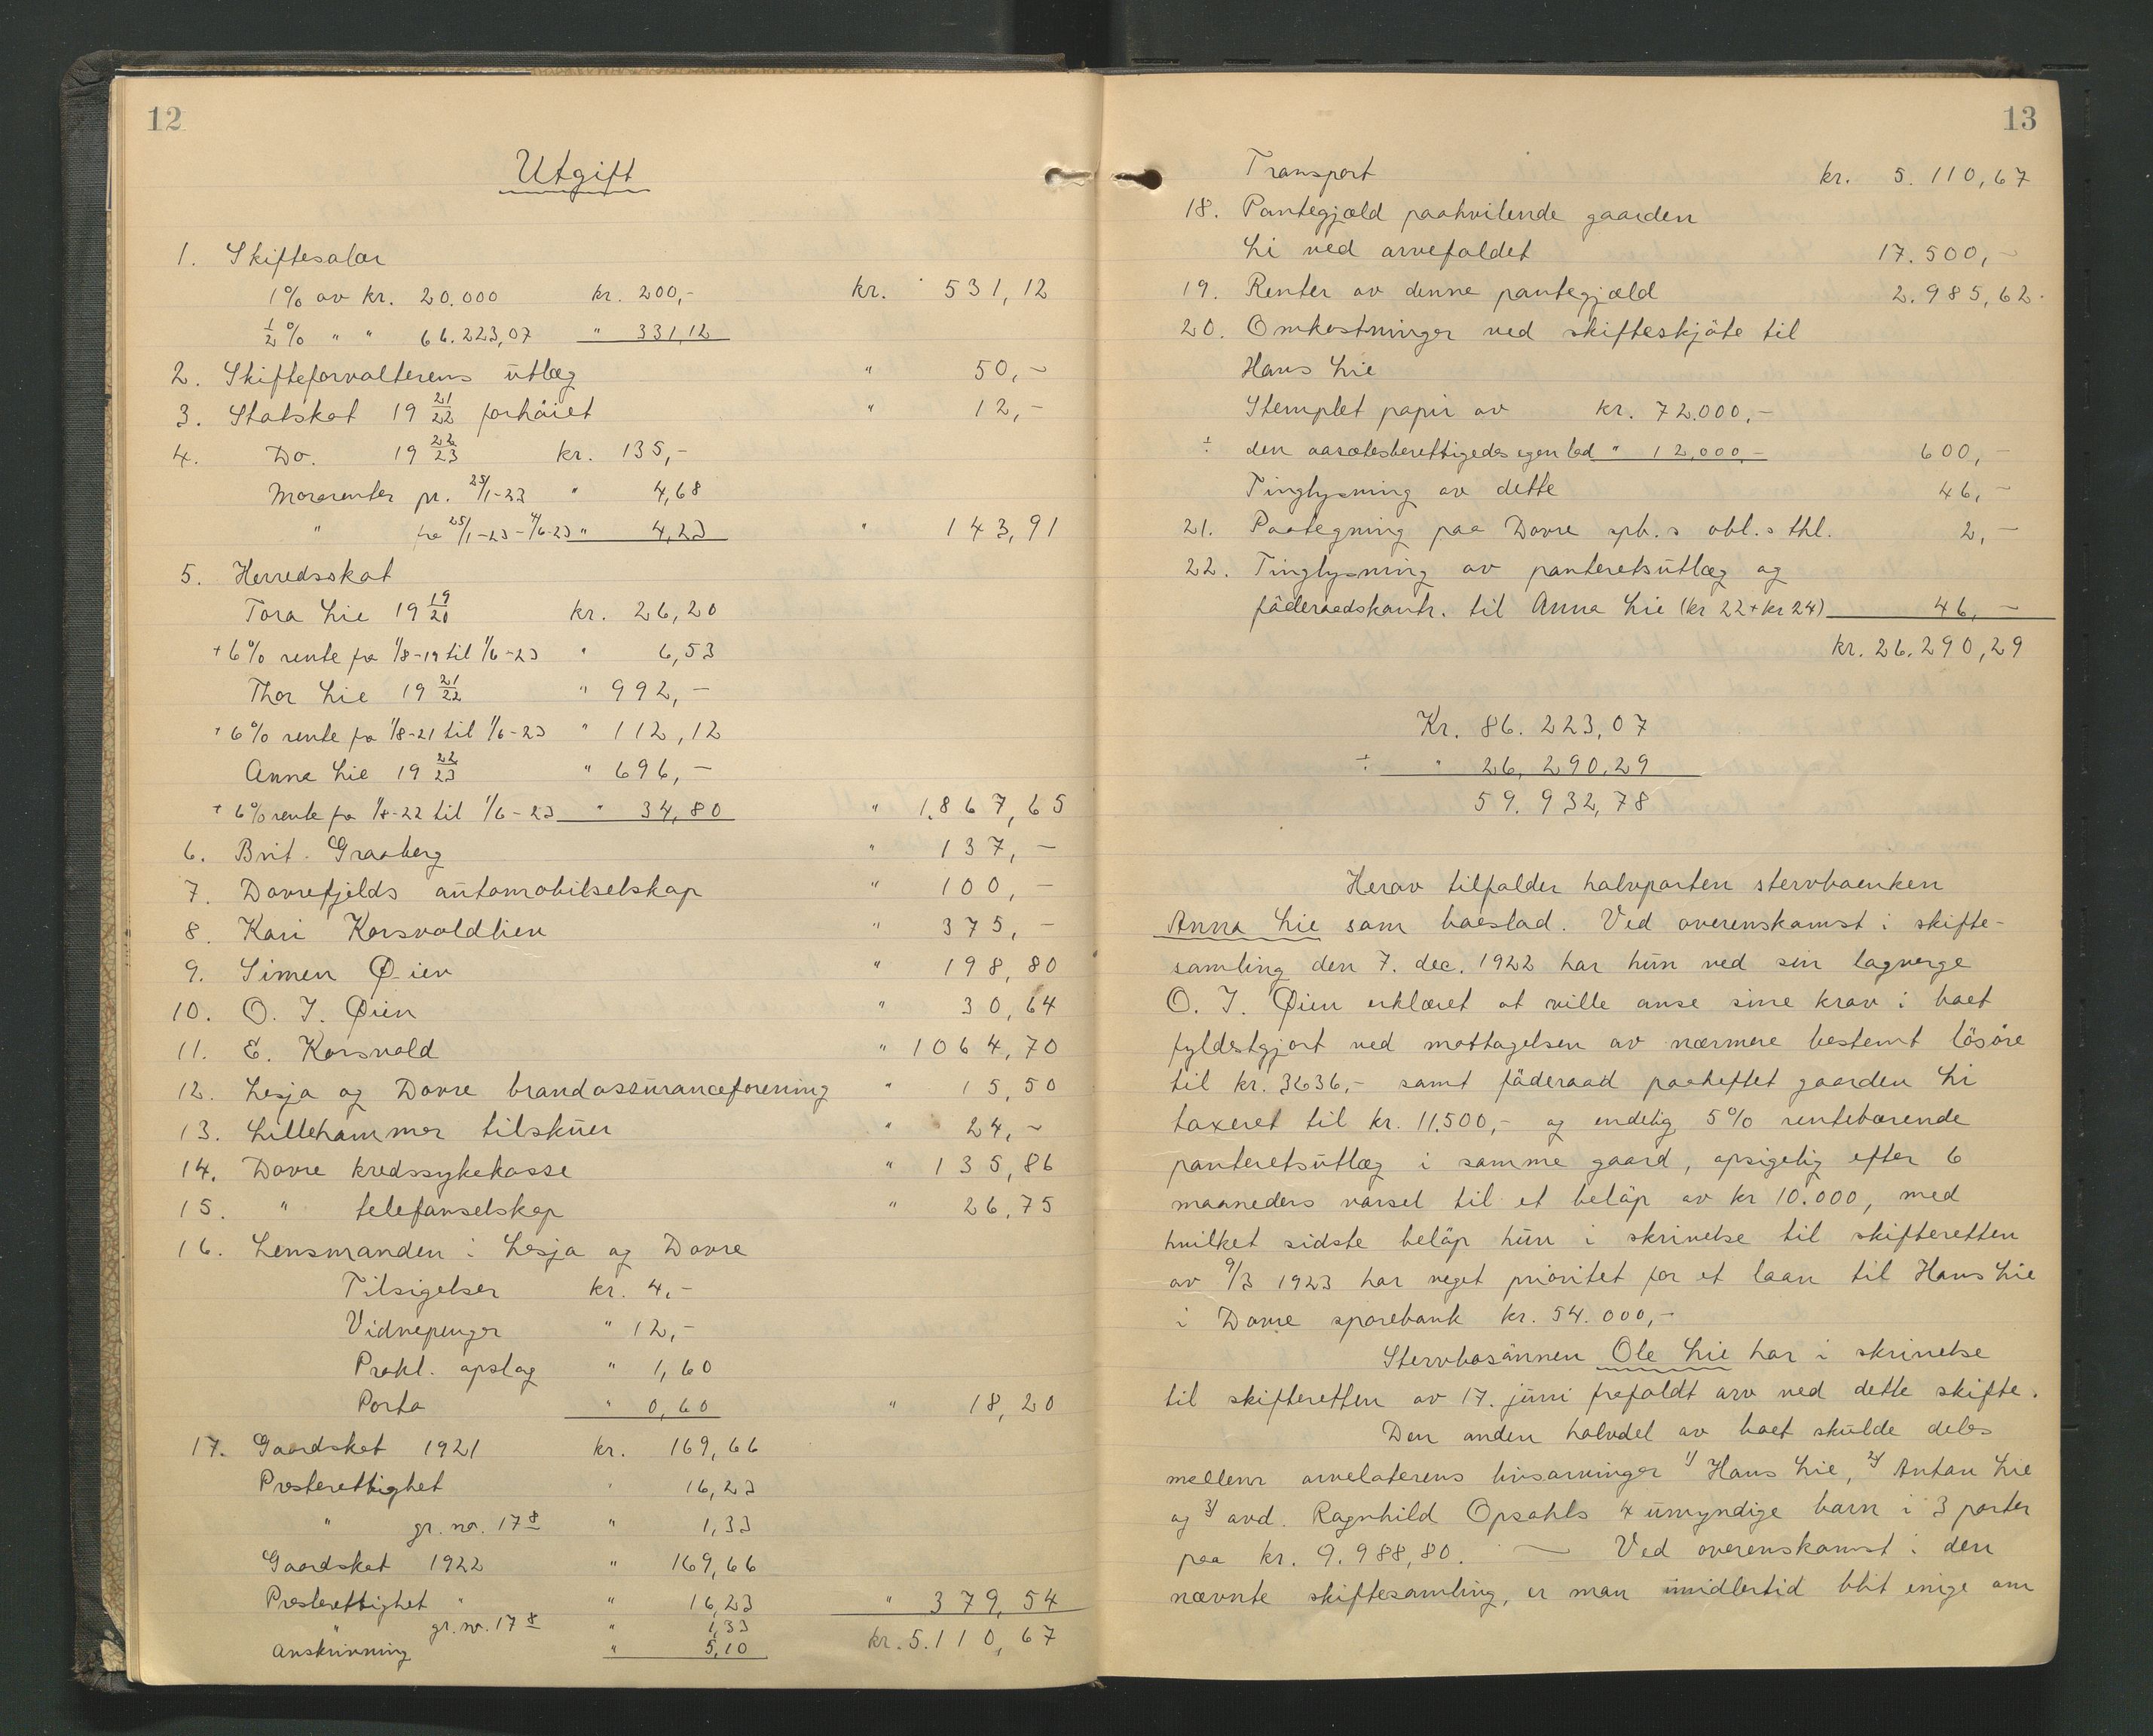 12
Utgift
1. Skiftesalær
1% av kr. 20.000 kr. 200,- kr. 531,12
½% " " 66.223,07 " 331,12
2. Skifteforvalterens utlæg " 50,-
3. Statskat 19 21/22 forhöiet " 12,-
4. Do. 19 22/23 kr. 135,-
Morarenter pr. 25/1-23 " 4,68
" fra 25/1-23 - 4/6-23 " 4,23 " 143,91
5. Herredsskat
Tora Lie 19 19/20 kr. 26,20
+ 6% rente fra 1/8-19 til 1/6-23 " 6,53
Thor Lie 19 21/22 " 992,-
+ 6% rente fra 1/8-21 til 1/6-23 " 112,12
Anna Lie 19 22/23 " 696,-
+ 6% rente fra 1/8-22 til 1/6-23 " 34,80 " 1.867,65
6. Brit. Graaberg " 137,-
7. Dovrefjelds automobilselskap " 100,-
8. Kari Korsvoldlien " 375,-
9. Simen Øien " 198,80
10. O. J. Øien " 30,64
11. E. Korsvold " 1064,70
12. Lesja og Dovre brandassuranceforening " 15,50
13. Lillehammer tilskuer " 24,-
14. Dovre kredssykekasse " 135,86
15. " telefonselskap " 26,75
16. Lensmanden i Lesja og Dovre
Tilsigelser kr. 4,-
Vidnepenger " 12,-
Prokl. opslag " 1,60
Porto " 0,60 " 18,20
17. Gaardskat 1921 kr. 169,66
Presterettighet " 16,23
" gr. no. 17 8 " 1,33
Gaardskat 1922 " 169,66
Presterettighet " " 16,23 " 379,54
" gr. no. 17 8 " 1,33
Anskrivning " 5,10 kr. 5.110,67
13
Transport kr. 5.110,67
18. Pantegjæld paahvilende gaarden
Li ved arvefaldet 17.500,-
19. Renter av denne pantegjæld 2.985,62.
20. Omkostninger ved skifteskjöte til
Hans Lie
Stemplet papir av kr. 72.000,-
÷ den aasætesberettigedes egen lod " 12,000,- 600,-
Tinglysning av dette 46,-
21. Paategning paa Dovre spb.s obl.s thl. 2,-
22. Tinglysning av panteretsutlæg og
föderaadskontr. til Anna Lie (kr 22 + kr 24) 46,-
kr. 26.290,29
Kr. 86.223,07
÷ " 26,290,29
59.932,78
Herav tilfalder halvparten stervboenken
Anna Lie som boeslod. Ved overenskomst i skifte-
samling den 7. dec. 1922 har hun ved sin lagverge
O. J. Øien erklæret at ville anse sine krav i boet
fyldestgjort ved mottagelsen av nærmere bestemt lösöre
til kr. 3636,- samt föderaad paaheftet gaarden Li
taxeret til kr. 11.500,- og endelig 5% rentebærende
panteretsutlæg i samme gaard, opsigelig efter 6
maaneders varsel til et belöp av kr 10.000, med
hvilket sidste belöp hun i skrivelse til skifteretten
av 9/3 1923 har veget prioritet for et laan til Hans Lie
i Dovre sparebank kr. 54.000,-
Stervbosönnen Ole Lie har i skrivelse
til skifteretten av 17. juni frafaldt arv ved dette skifte.
Den anden halvdel av boet skulde deles
mellem arvelaterens livsarvinger 1) Hans Lie, 2) Anton Lie
og 3) avd. Ragnhild Opsahls 4 umyndige barn i 3 parter
paa kr. 9.988,80. — Ved overenskomst i den
nævnte skiftesamling, er man imidlertid blit enige om